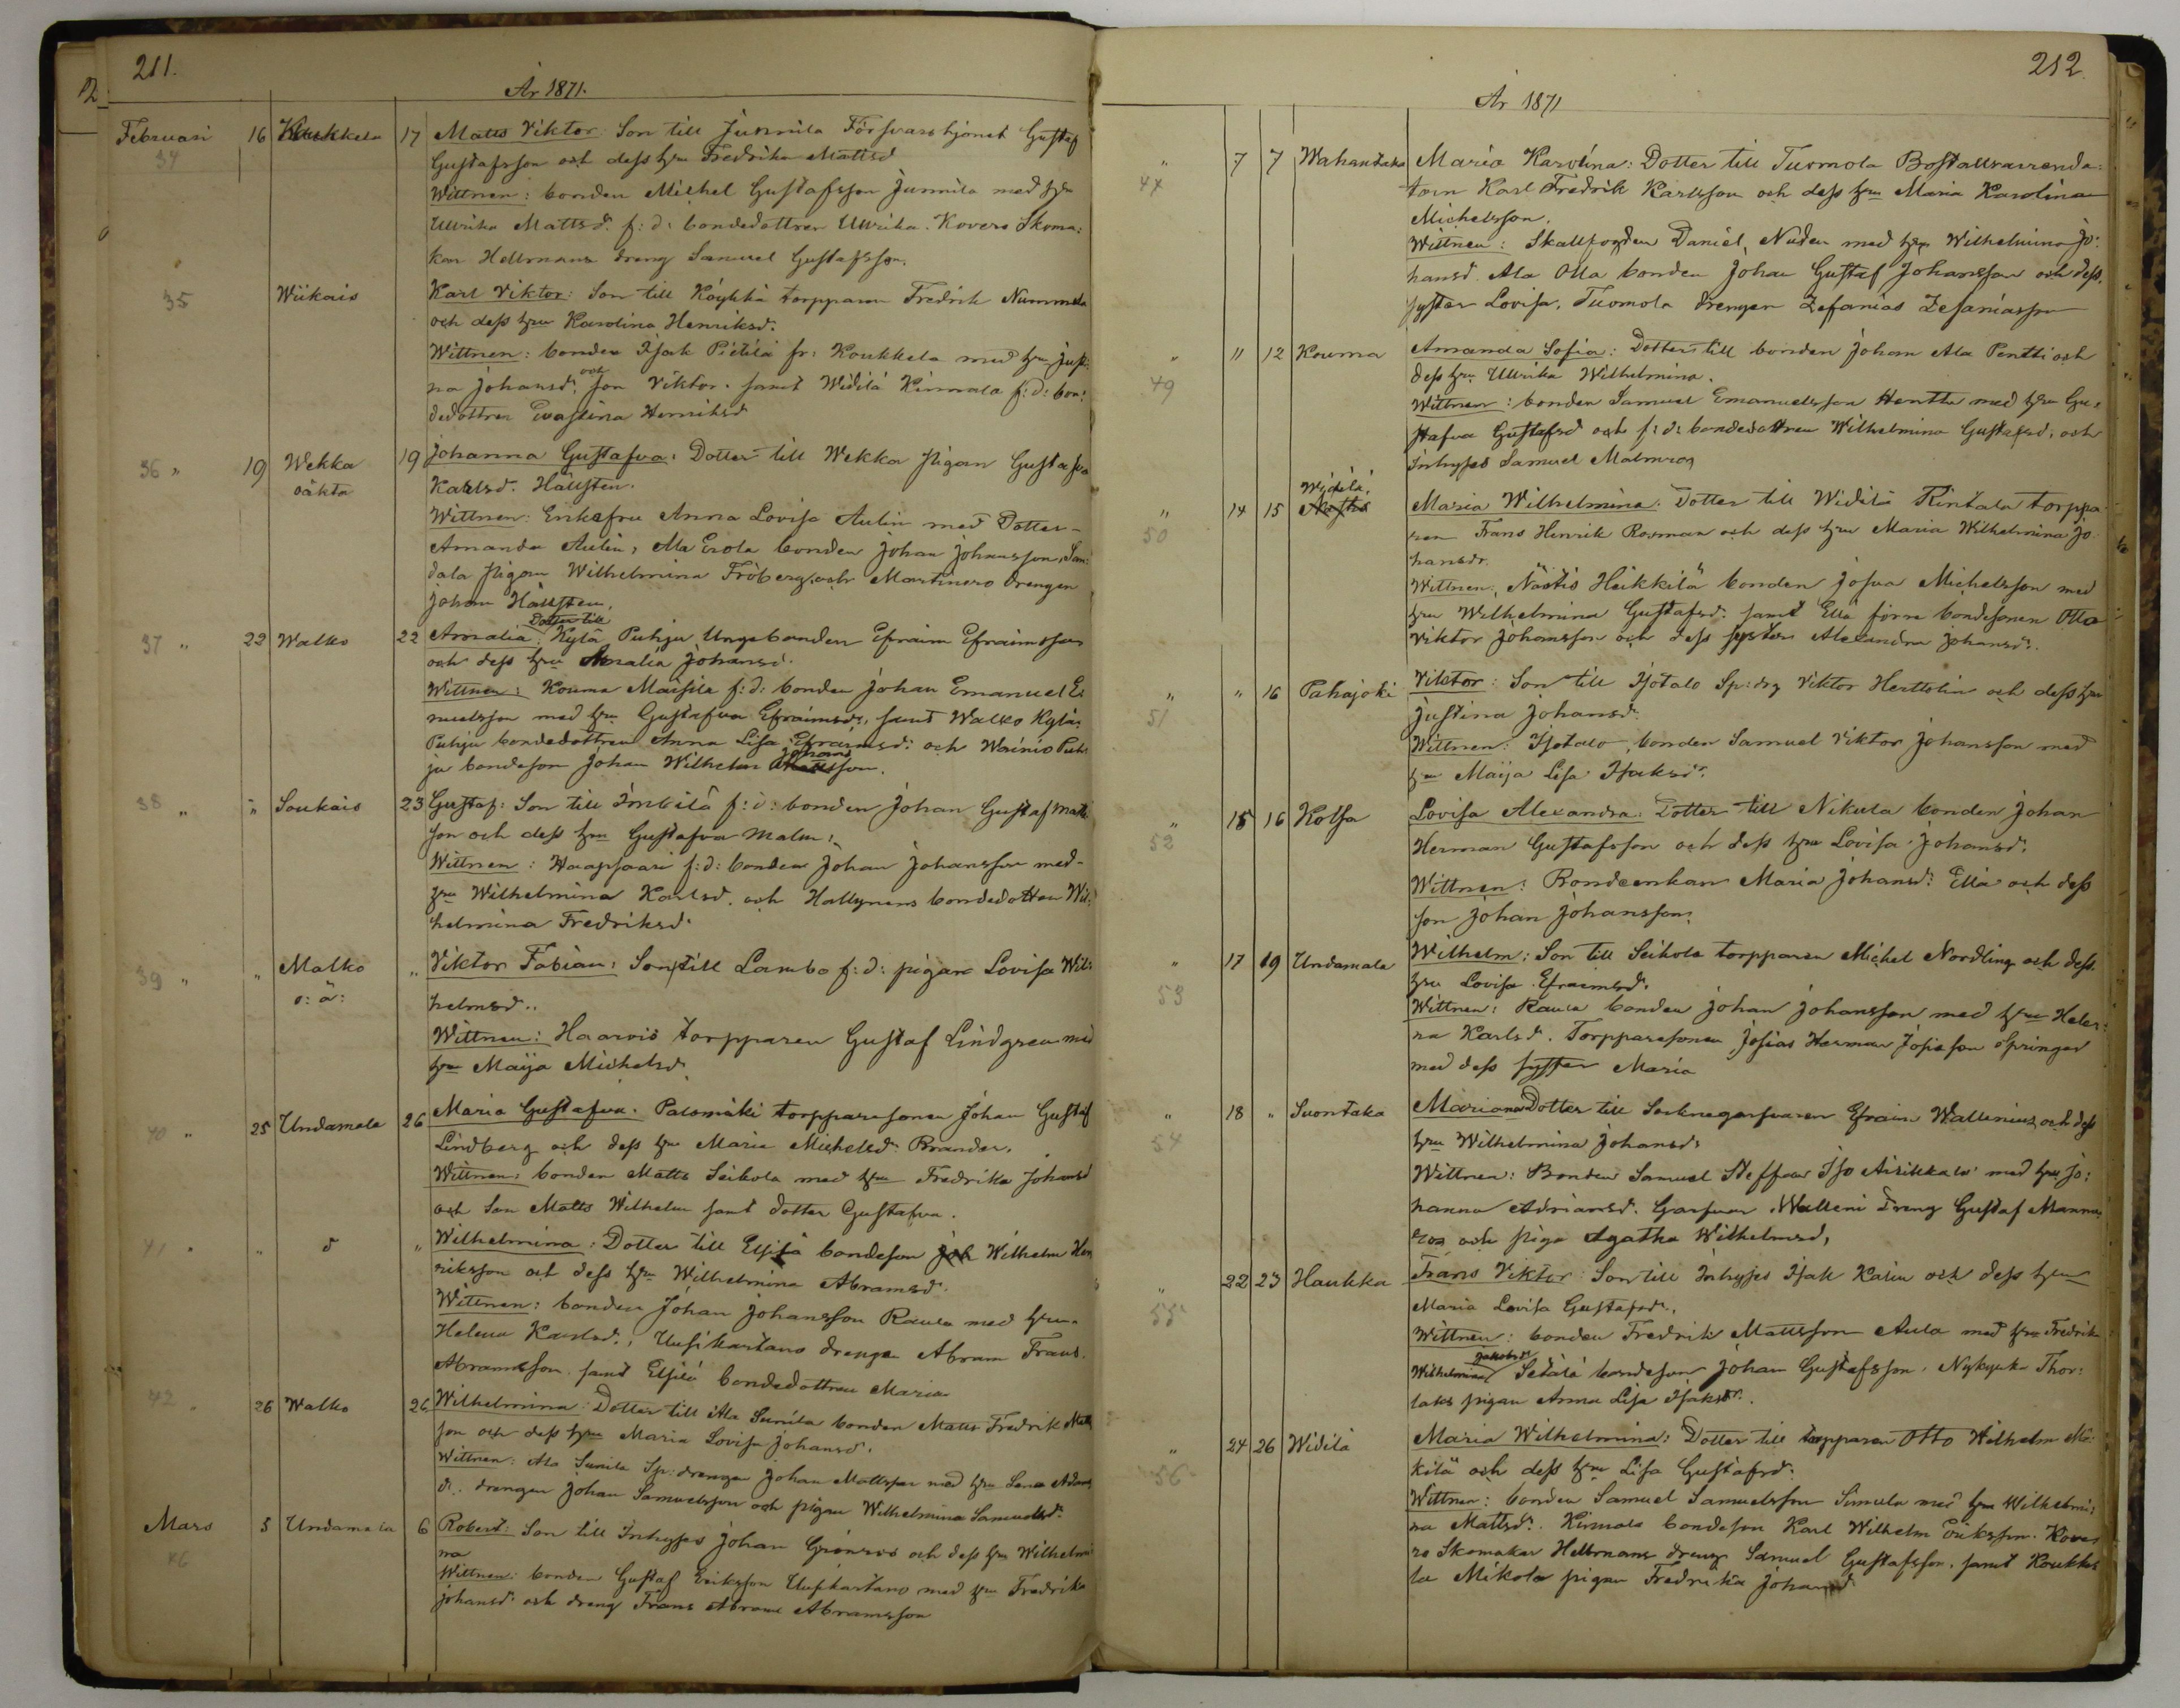 211.
År 1871.
Februari 16 Koukkela 17 Matts Viktor: Son till Junnila Försvarstjonst Gustaf
34 Gustafsson och dess hru Fredrika Mattsd
Wittnen: bonden Michel Gustafsson Junnila med hru
Ullrika Mattsd. f: d: bondedottren Ullrika. Kovero Skoma:
kar Hellrmans dreng Samuel Gustafsson.
35 Wiikais Karl Viktor: Son till Köykkä torpparen Fredrik Nummela
och dess hru Karolina Henriksd.
Wittnen: bonden Isak Pietilä fr: Koukkela med hru Justi:
na Johansd: och son Viktor. samt Widilä Kinnala f: d: bon:
dedottren Evastina Henriksd
36 " 19 Wekka 19 Johanna Gustafva: Dotter till Wekka pigan Gustafva
oäkta Karlsd. Hällsten.
Wittnen: Enkefru Anna Lovisa Aulin med Dotter-
Amanda Aulin, Ala Erola bonden Johan Johansson, San:
dala pigan Wilhelmina Fröberg, och Martinero drengen
Johan Hällsten.
37 " 22 Walko 22 Amalia: Dotter till Kylä Puhju Ungebonden Efraim Efraimsson
och dess hru Amalia Johansd.
Wittnen: Kouma Maisila f: d: bonden Johan Emanuel E:
nuelsson med hru Gustafva Efraimsdr, samt Walko Kylä:
Puhju bondedottren Anna Lisa Efraimsd: och Wainio Puh:
ju bondeson Johan Wilhelm Johansson.
38 " " Soukais 23 Gustaf: Son till Imbilä f: d: bonden Johan Gustaf Matts
son och dess hru Gustafva Malm:
Wittnen: Haapsaari f: d: bonden Johan Johansson med-
hru Wilhelmina Karlsd. och Hallynens bondedotter Wil:
helmina Fredriksd.
39 " " Malko " Viktor Fabian: Son till Lambo f: d: pigan Lovisa Wil:
o: ä: helmsd..
Wittnen: Haarvio torpparen Gustaf Lindgren med
hru Maija Michelsd.
40 " 25 Undamala 26 Maria Gustafva. Palomäki torpparesonen Johan Gustaf
Lindberg och dess hru Maria Michelsd: Brander.
Wittnen: bonden Matts Seikola med hru Fredrika Johansd
och Son Matts Wilhelm samt dotter Gustafva.
41 " " d " Wilhelmina: Dotter till Eljilä bondeson Joh Wilhelm Hen
riksson och dess hru Wilhelmina Abramsd.
Wittnen: bonden Johan Johansson Raula med hru.
Helena Karlsd., Uusikartano drengen Abram Frans.
Abramsson samt Eljilä bondedottren Maria
42 " 26 Walko 26 Wilhelmina: Dotter till Ala Sunila bonden Matts Fredrik Matts
son och dess hru Maria Lovisa Johansd.
Wittnen: Ala Sunila Sp: drengen Johan Mattsson med hru Lena Adams
dr. drengen Johan Samuelsson och pigan Wilhelmina Samuelsd:
Mars 5 Undamala 6 Robert: Son till Inhyses Johan Grönroos och dess hru Wilhelmi
46 na
Wittnen: bonden Gustaf Eriksson Uusikartano med hru Fredrika
Johansd. och dreng Frans Abram Abramsson
212
År 1871
" 7 7 Wahantaka Maria Karolina: Dotter till Tuomola Boställsarrenda:
47 torn Karl Fredrik Karlsson och dess hru Maria Karolina
Michelsson.
Wittnen: Skallfogden Daniel, Nuden med hru Wilhelmina Jo:
hansd. Ala Olla bonden Johan Gustaf Johansson och dess.
syster Lovisa. Tuomola drengen Zefanias Zefaniasson
" 11 12 Kouma Amanda Sofia: Dotter till bonden Johan Ala Pentti och
49 dess hru Ullrika Wilhelmina.
Wittnen: bonden Samuel Emanuelsson Hentta med hru Gu:
stafva Gustafsd och f: d: bondedottren Wilhelmina Gustafsd. och
Inhyses Samuel Malmroos
" 14 15 Widilä, Maria Wilhelmina: Dotter till Widilä Rintala torppa
50 ren Frans Henrik Rosman och dess hru Maria Wilhelmina Jo
hansdr.
Wittnen, Nästis Heikkilä bonden Josua Michelsson med
hru Wilhelmina Gustafsd: samt Ellä förra bondesonen Otto
Viktor Johansson och dess syster Alexandra Johansd:.
" " 16 Pahajoki Viktor: Son till Isotalo Sp: drg Viktor Herttolin och dess hru
51 Justina Johansd:
Wittnen: Isotalo, bonden Samuel Viktor Johansson med
hru Maija Lisa Isaksdr.
" 15 16 Kolsa Lovisa Alexandra: Dotter till Nikula bonden Johan
52 Herman Gustafsson och dess hru Lovisa Johansd.
Wittnen: Bondeenkan Maria Johansd: Ellä och dess
son Johan Johansson.
" 17 19 Undamala Wilhelm: Son till Seikola torpparen Michel Nordling och dess.
53 hru Lovisa Efraimsd.
Wittnen: Raula bonden Johan Johansson med hru Hele:
na Karlsd. Torpparesonen Josias Herman Josiasson Springer
med dess syster Maria
" 18 " Suontaka Maria Dotter till Socknegarfvaren Efraim Wallenius och dess
54 hru Wilhelmina Johansd:
Wittnen: Bonden Samuel Steffan Iso Airikkala med hru Jo:
hanna Adriansd. Garfvar Walleni dreng Gustaf Manne
roos och piga Agatha Wilhelmsd,
" 22 23 Haukka Frans Viktor: Son till Inhyses Isak Kalin och dess hru
55 Maria Lovisa Gustafsdr.
Wittnen: bonden Fredrik Mattsson Aula med hru Fredrika
Wilhelmina Jakobsdr Setälä bondeson Johan Gustafsson. Nykyrko Thor:
laks pigan Anna Lisa Isaksdr.
" 24 26 Widilä Maria Wilhelmina: Dotter till torpparen Otto Wilhelm Mä:
56 kilä och dess hru Lisa Gustafsd:
Wittnen: bonden Samuel Samuelsson Simula med hru Wilhelmi:
na Mattsd:. Kinnala bondeson Karl Wilhelm Eriksson. Kove
ro Skomakar Hellrmans dreng Samuel Gustafsson. samt Koukke
la Mikola pigan Fredrika Johansd